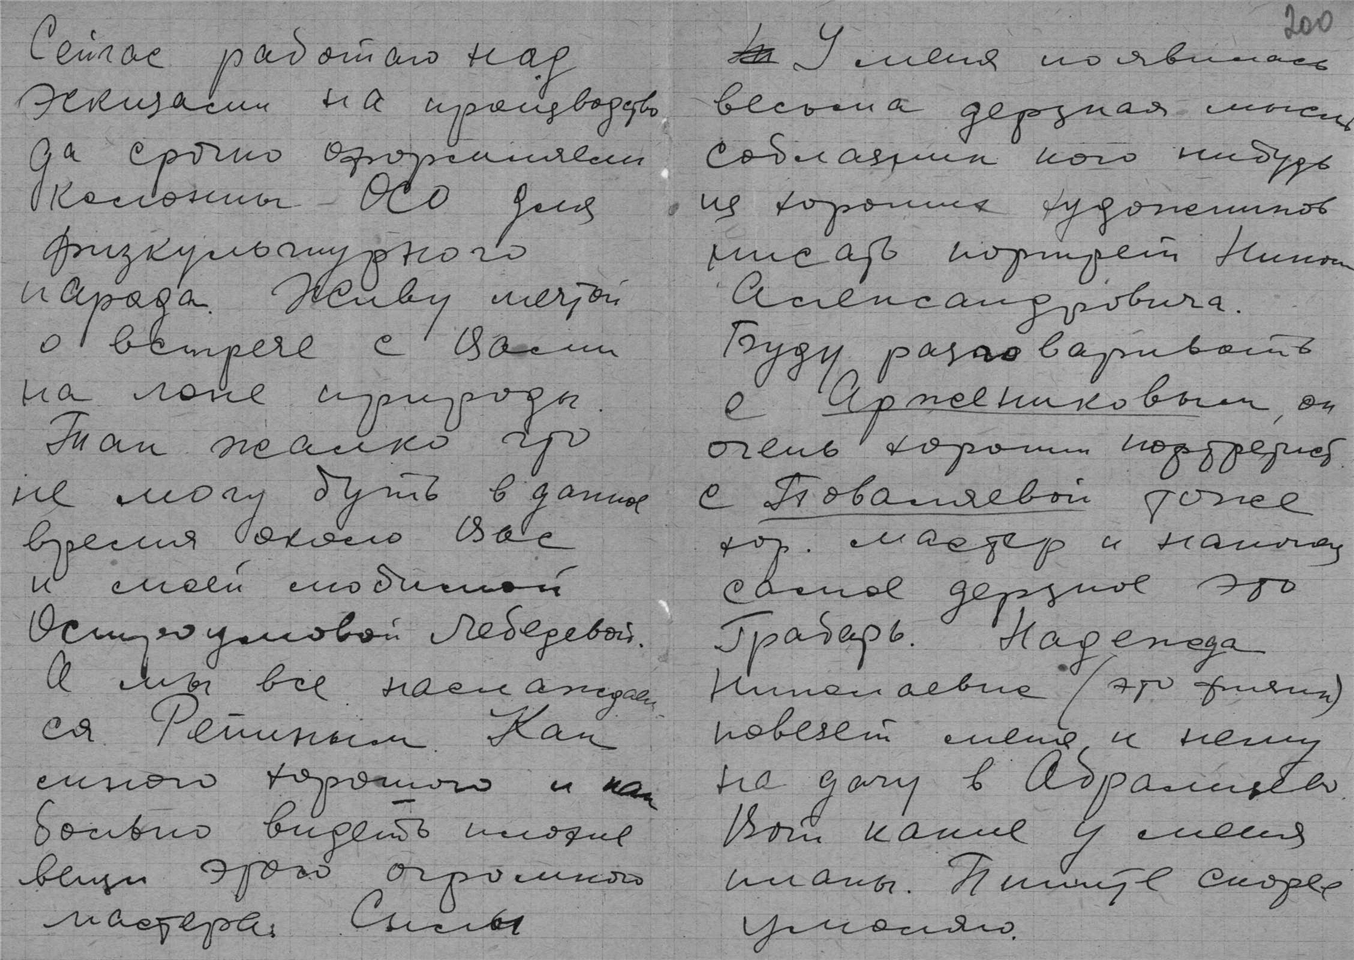 Сейчас работаю над
эскизами на производство
да срочно оформляем
колонны ОСО для
физкультурного
парада. Живу мечтой
о встрече с Вами
на лоне природы.
Так жалко что
не могу быть в данное
время около Вас
и моей любимой
Остроумовой Лебедевой.
А мы все наслаждаем
ся Репиным. Как
много хорошего и как
больно видеть плохие
вещи этого огромного
мастера.
200
У меня появилась
весьма дерзкая мысль
соблазнить кого нибудь
из хороших художников
писать портрет
Александровича.
Буду разговаривать
с Аржениковым, он
очень хороший портретист
с Поваляевой тоже
хор. мастер и наконец
самое дерзкое это
Грабарь. Надежда
Николаевна (это)
повезет меня к нему
на дачу в Абрамцево.
Вот какие у меня
планы. Пишите скорее
умоляю.